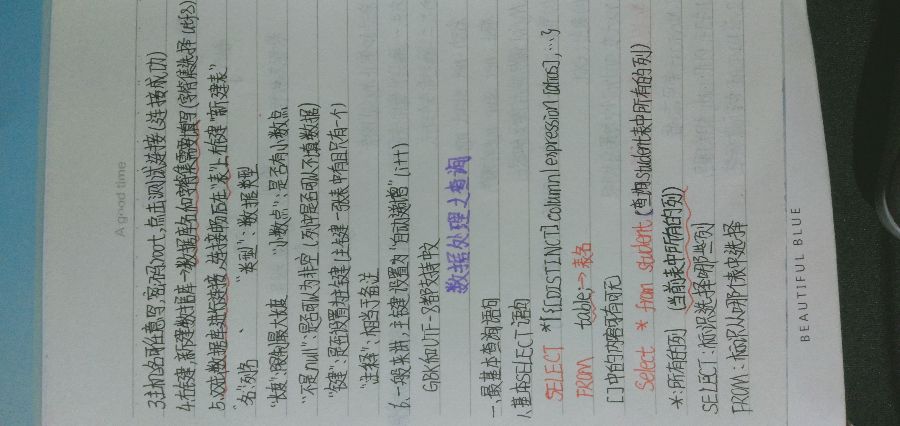 A good time
3.主机名可任意写,密码root,点击测试连接(连接成功)
4.右键,新建数据库→数据库名和字符集需要填写(字符集选择utf8)
5.双击数据库进行连接,连接畅后在"表"上右键"新建表"
"名":列名、 "类型":数据类型
"长度":限制最大长度 "小数点":是否有小数点
"不是null":是否可以为非空(列中是否可以不填数据)
"键":是否设置为主键(主键一张表中有且只有一个)
"注释":相当于备注
6.一般来讲,主键设置为"自动递增"(i++)
GBK和UTF-8都支持中文
数据处理之查询
一、最基本查询语句
1.基本SELECT语句
SELECT *|{[DISTINCT] column|expression [alias],…}
FROM table;→表名
[]中的内容可有可无
Select * from student(查询student表中所有的列)
*:所有的列(当前表中所有的列)
SELECT:标识选择哪些列
FROM:标识从哪个表中选择
BEAUTIFUL BLUE